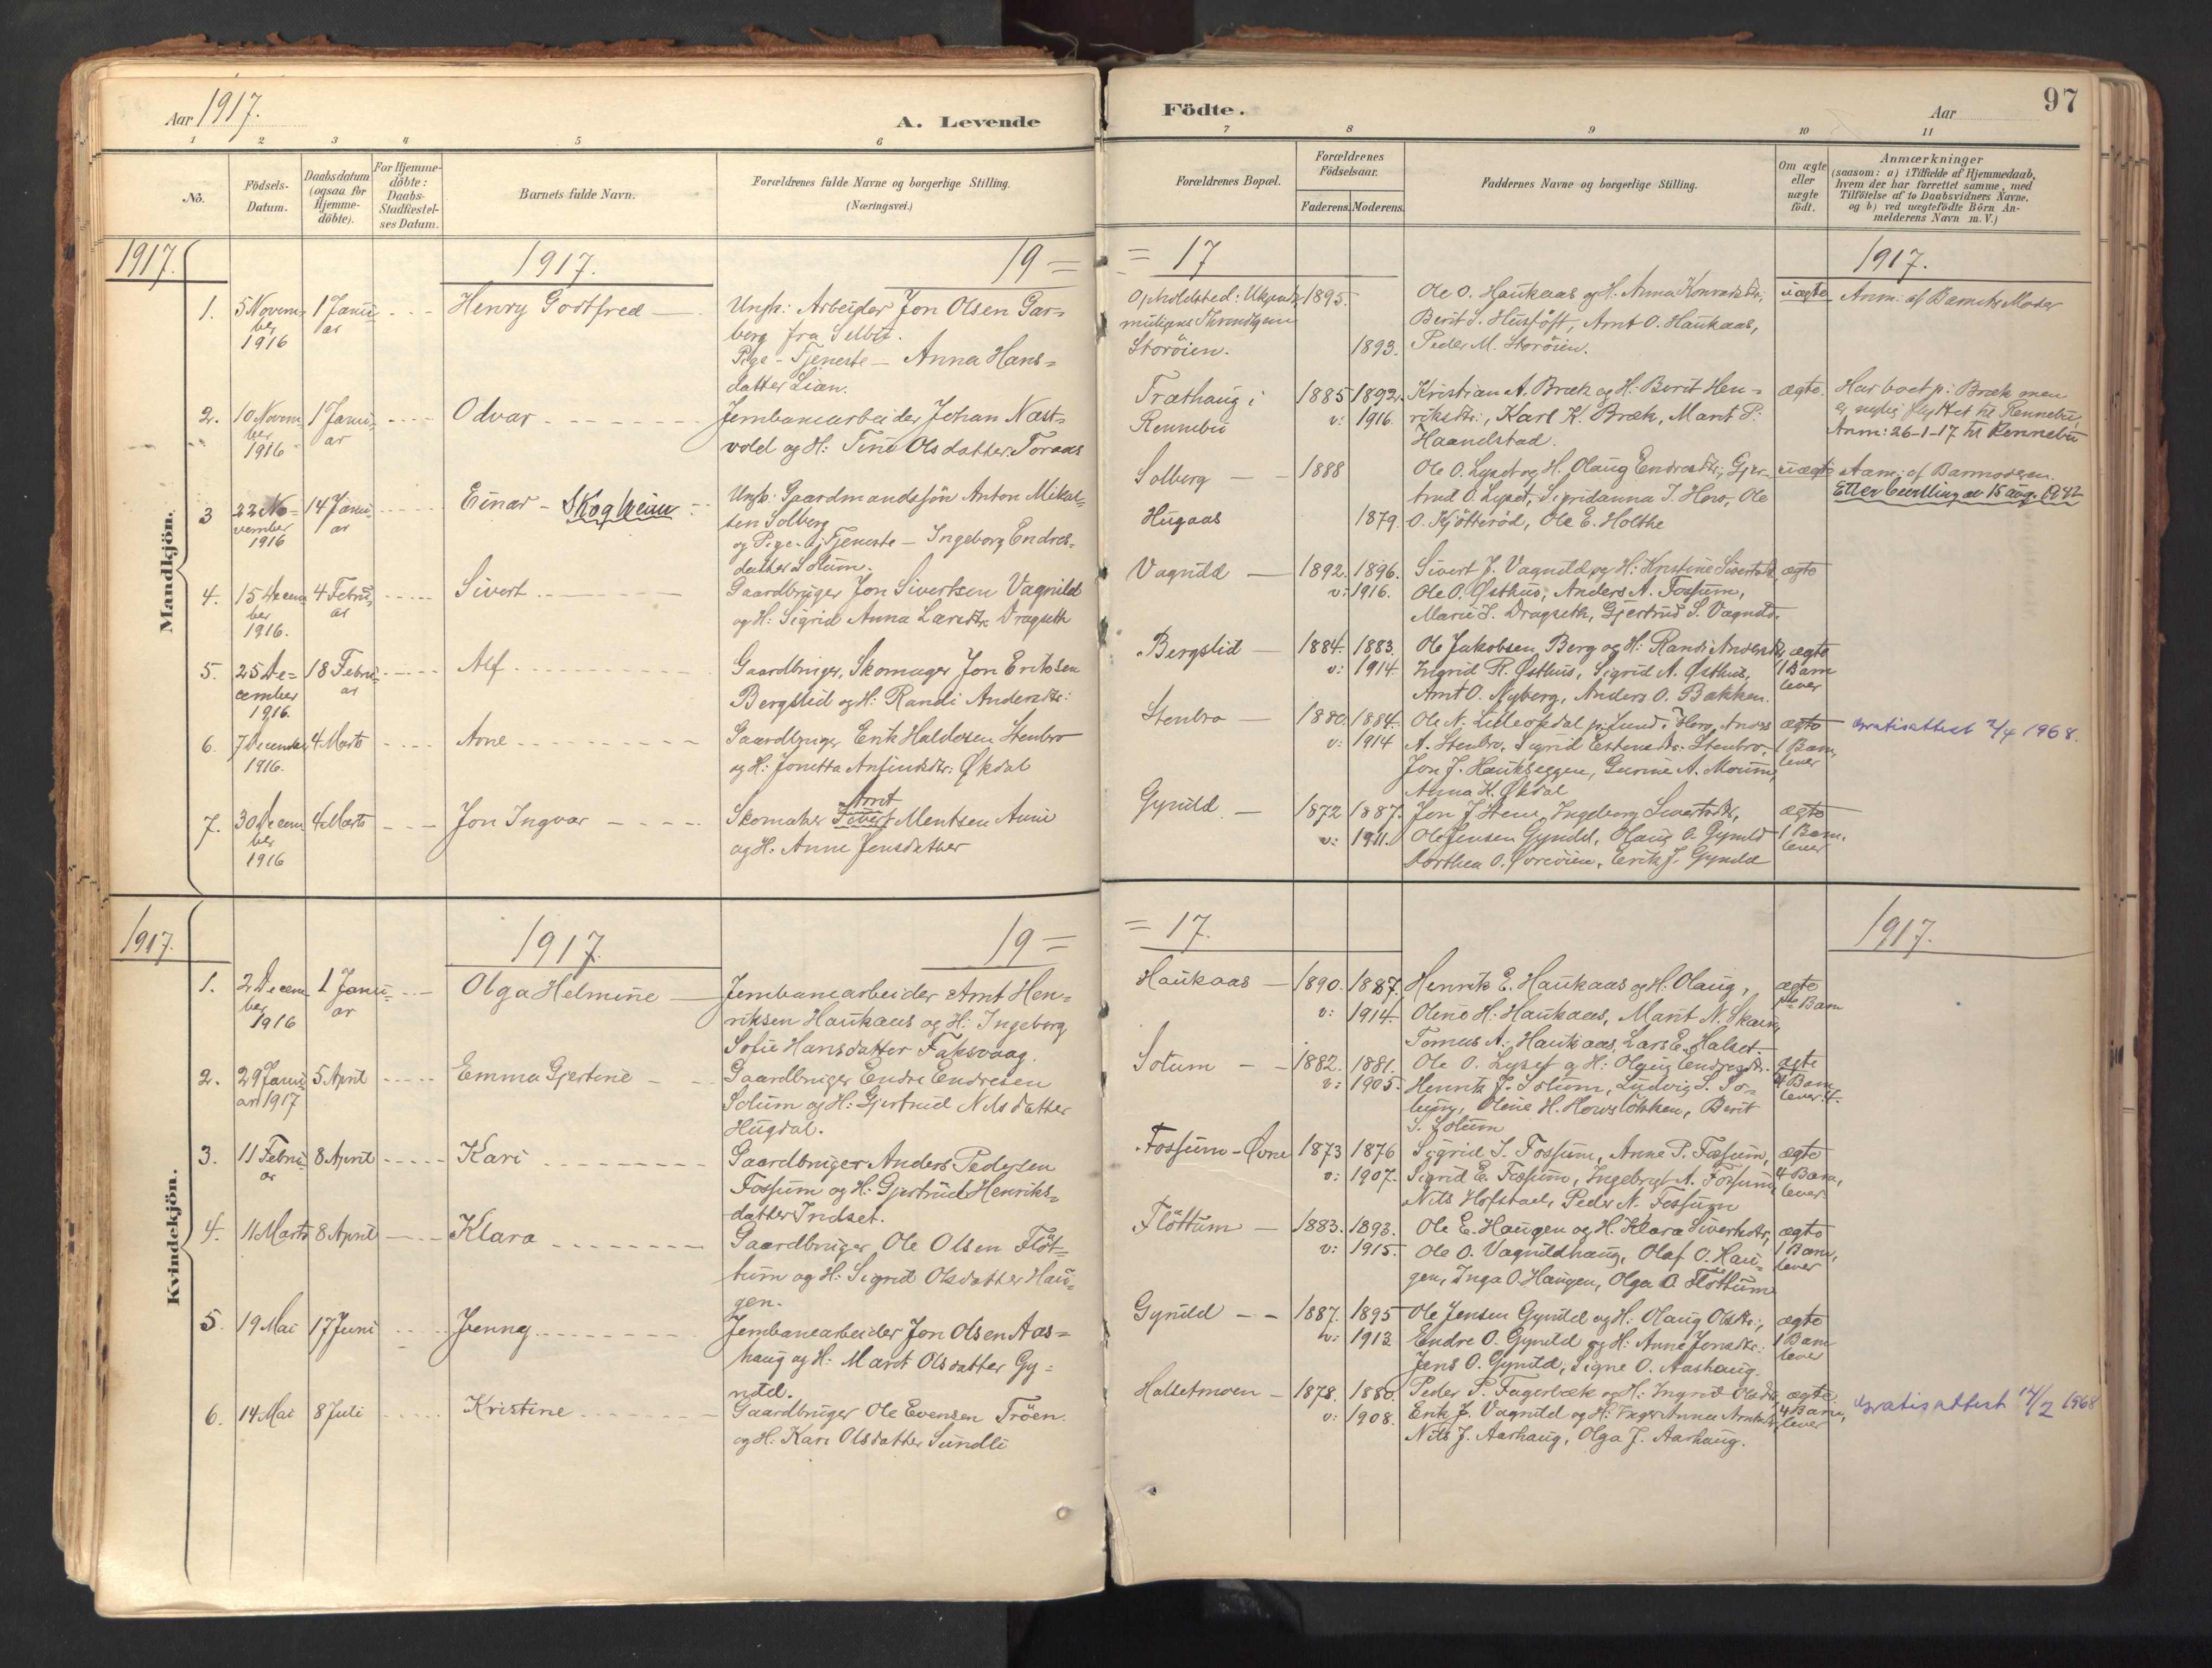 Aar 1917.
A. Levende
Födte.
Aar
97
1 2 3 4 5 6
7 8 9 10 11
No.
Födsels-
Datum.
Daabsdatum
(ogsaa for
Hjemme-
döbte).
For Hjemme-
döbte:
Daabs-
Stadfæstel-
ses Datum.
Barnets fulde Navn.
Forældrenes fulde Navne og borgerlige Stilling.
(Næringsvei.)
Forældrenes Bopæl.
Forældrenes
Födselsaar.
Faderens. Moderens.
Faddernes Navne og borgerlige Stilling.
Om ægte
eller
uægte
födt.
Anmærkninger
(saasom: a) i Tilfælde af Hjemmedaab,
hvem der har forrettet samme, med
Tilföielse af to Daabsvidners Navne,
og b) ved uægtefödte Börn An-
melderens Navn m. V.)
Mandkjön.
1917. 1917. 19 =
= 17 1917.
1.
5 Novem-
ber
1916
1 Janu-
ar
Henry Gotfred
Ungk: Arbeider Jon Olsen Gar-
berg fra Selbu.
Pige - Tjeneste - Anna Hans-
datter Lian.
Opholdsted: Ukjendt
muligens Throndhjem
Storöien.
1895.
1893.
Ole O. Haukaas og H. Anna Konradsdtr;
Berit S. Husjöft, Arnt O. Haukaas,
Peder M. Storöien.
uægte
Anm: af Barnets Moder
2.
10 Novem
ber
1916
1 Janu-
ar
Odvar
Jernbanearbeider Johan Næst-
vold og H: Tine Olsdatter Foraas
Træthaug i
Rennebu
1885 1892.
v: 1916.
Kristian A. Bræk og H: Berit Hen-
riksdtr:, Karl K. Bræk, Marit P.
Haandstad.
ægte.
Har boet p: Bræk men
er nylig flyttet til Rennebu,
Anm: 26-1-17 til Rennebu
3
22 No-
vember
1916
14 Janu-
ar
Einar - Skogheim
Ungk: Gaardmandssön Anton Mikal-
sen Solberg
og Pige - Tjeneste - Ingeborg Endres-
datter Solum.
Solberg
Hugaas
1888
1879.
Ole O. Lyset og H. Olaug Endresdtr; Gjer-
trud O. Lyset, Sigridanna J. Hov, Ole
O. Kjötteröd, Ole E. Holthe
uægte
Anm: af Barnmoderen.
Etter bevilling av 15 aug. 1942
4.
15 Decem
ber
1916.
4 Febru-
ar
Sivert
Gaardbruger Jon Sivertsen Vagnild
og H: Sigrid Anna Larsdtr. Dragseth
Vagnild
1892. 1896.
v: 1916.
Sivert J. Vagnild og H: Kristine Sivertsdtr,
Ole O. Östhus, Anders A. Fossum,
Marie L. Dragseth, Gjertrud S. Vagnild.
ægte
5.
25 De-
cember
1916.
18 Febru-
ar
Alf
Gaardbruger, Skomager Jon Eriksen
Bergslid og H: Randi Andersdtr:
Bergslid
1884. 1883.
v: 1914
Ole Jakobsen Berg og H: Randi Andersdtr,
Ingrid R. Østhus, Sigrid A. Østhus,
Arnt O. Nyberg, Anders O. Bakken.
ægte
1 Barn
lever
6.
7 December
1916.
4 Marts
Arne
Gaardbruger Erik Haldorsen Stenbro
og H: Jonetta Anfindsdtr: Økdal
Stenbro
1880. 1884.
v: 1914
Ole N. Lilleøkdal p: Lund i Hov, Anders
A. Stenbro, Sigrid Estensdtr. Stenbro,
Jon J. Haukseggen, Gurine A. Moum,
Anna H. Økdal
ægte
1 Barn,
lever
Gratisattest 2/4 1968.
7.
30 Decem
ber
1916
4 Marts
Jon Ingvar
Arnt
Skomaker Sivert Mentsen Aune
og H: Anne Jensdatter
Gynild
1872 1887.
v: 1911.
Jon J. Stene, Ingeborg Sivertsdtr,
Ole Jensen Gynild, Olaug O. Gynild
Dorthea O. Öreöien, Erik J. Gynild
ægte
1 Barn.
lever
Kvindekjön.
1917. 1917. 19 =
= 17. 1917.
1.
2 Decem
ber
1916
1 Janu-
ar
Olga Helmine
Jernbanearbeider Arnt Hen-
riksen Haukaas og H: Ingeborg
Sofie Hansdatter Faksvaag.
Haukaas
1890. 1887.
v: 1914.
Henrik E. Haukaas og H. Olaug,
Oline H. Haukaas, Marit N. Skaen
Tomas A. Haukaas, Lars E. Halset.
ægte
1ste Barn
2.
29 Janu
ar 1917
5 April
Emma Gjertine
Gaardbruger Endre Endresen
Solum og H: Gjertrud Nilsdatter
Hugdal.
Solum
1882. 1881.
v: 1905.
Ole O. Lyset og H: Olaug Endresdtr.
Henrik J. Solum, Ludvig S. So-
lem, Oline H. Hovslökken, Berit
S. Solum
ægte
4 Barn
lever 4.
3.
11 Febru-
ar
8 April
Kari
Gaardbruger Anders Pedersen
Fossum og H: Gjertrud Henriks-
datter Indset.
Fossum-Övre
1873 1876
v: 1907.
Sigrid S. Fossum, Anne P. Fossum,
Sigrid E. Fossum, Ingebrigt A. Fossum,
Nils Hofstad, Peder N. Fossum
ægte
4 Barn,
lever
4.
11 Marts
8 April
Klara
Gaardbruger Ole Olsen Flöt-
tum og H: Sigrid Olsdatter Hau-
gen.
Flöttum
1883. 1893.
v: 1915.
Ole E. Haugen og H. Klara Sivertsdtr,
Ole O. Vagnildhaug, Olaf O. Hau-
gen, Inga O. Haugen, Olga O. Flöttum
ægte
1 Barn,
lever
5.
19 Mai
17 Juni
Jenny
Jernbanearbeider Jon Olsen Aas-
haug og H: Marit Olsdatter Gy-
nild.
Gynild
1887. 1895
v: 1913
Ole Jensen Gynild og H: Olaug Olsdtr,
Endre O. Gynild og H: Anne Jonsdtr:
Jens O. Gynild, Signe O. Aashaug.
ægte
1 Barn
lever
6.
14 Mai
8 Juli
Kristine
Gaardbruger Ole Evensen Tröen
og H: Kari Olsdatter Sundli
Halsetmoen
1878. 1880.
v: 1908.
Peder P. Fagerbæk og H: Ingrid Olsdtr,
Erik J. Vagnild og H: Inger Anna Arntsdtr,
Nils J. Aashaug, Olga J. Aashaug.
ægte
4 Barn,
lever
Gratisattest 14/2 1968